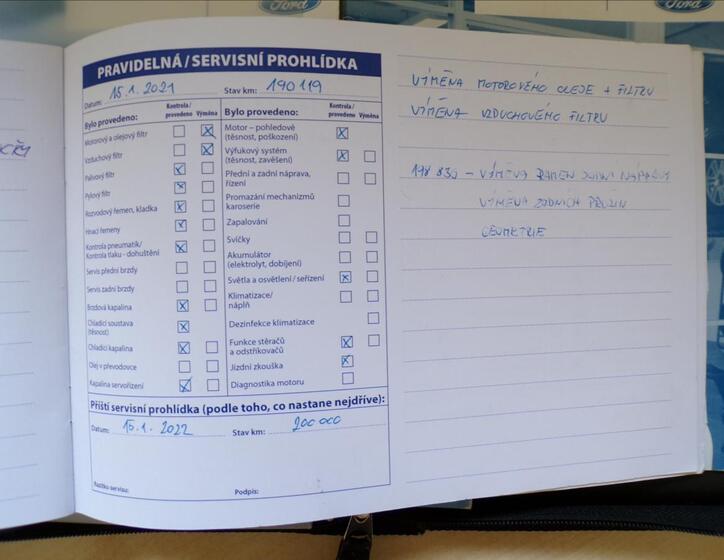 Ford
Ford
PRAVIDELNÁ / SERVISNÍ PROHLÍDKA
Datum: 15.1.2021 Stav km: 190 119
Bylo provedeno: Kontrola / provedeno Výměna
Motorový a olejový filtr
Vzduchový filtr
Palivový filtr
Pylový filtr
Rozvodový řemen, kladka
Hnací řemeny
Kontrola pneumatik/
Kontrola tlaku - dohuštění
Servis přední brzdy
Servis zadní brzdy
Brzdová kapalina
Chladicí soustava
(těsnost)
Chladicí kapalina
Olej v převodovce
Kapalina servořízení
Bylo provedeno: Kontrola / provedeno Výměna
Motor – pohledově
(těsnost, poškození)
Výfukový systém
(těsnost, zavěšení)
Přední a zadní náprava,
řízení
Promazání mechanizmů
karoserie
Zapalování
Svíčky
Akumulátor
(elektrolyt, dobíjení)
Světla a osvětlení / seřízení
Klimatizace/
náplň
Dezinfekce klimatizace
Funkce stěračů
a odstřikovačů
Jízdní zkouška
Diagnostika motoru
Příští servisní prohlídka (podle toho, co nastane nejdříve):
Datum: 15.1.2022 Stav km: 200 000
Razítko servisu: Podpis:
VÝMĚNA MOTOROVÉHO OLEJE + FILTRU
VÝMĚNA VZDUCHOVÉHO FILTRU
VÝMĚNA RAMEN ZADNÍ NÁPRAVY
VÝMĚNA ZADNÍCH PRUŽIN
GEOMETRIE